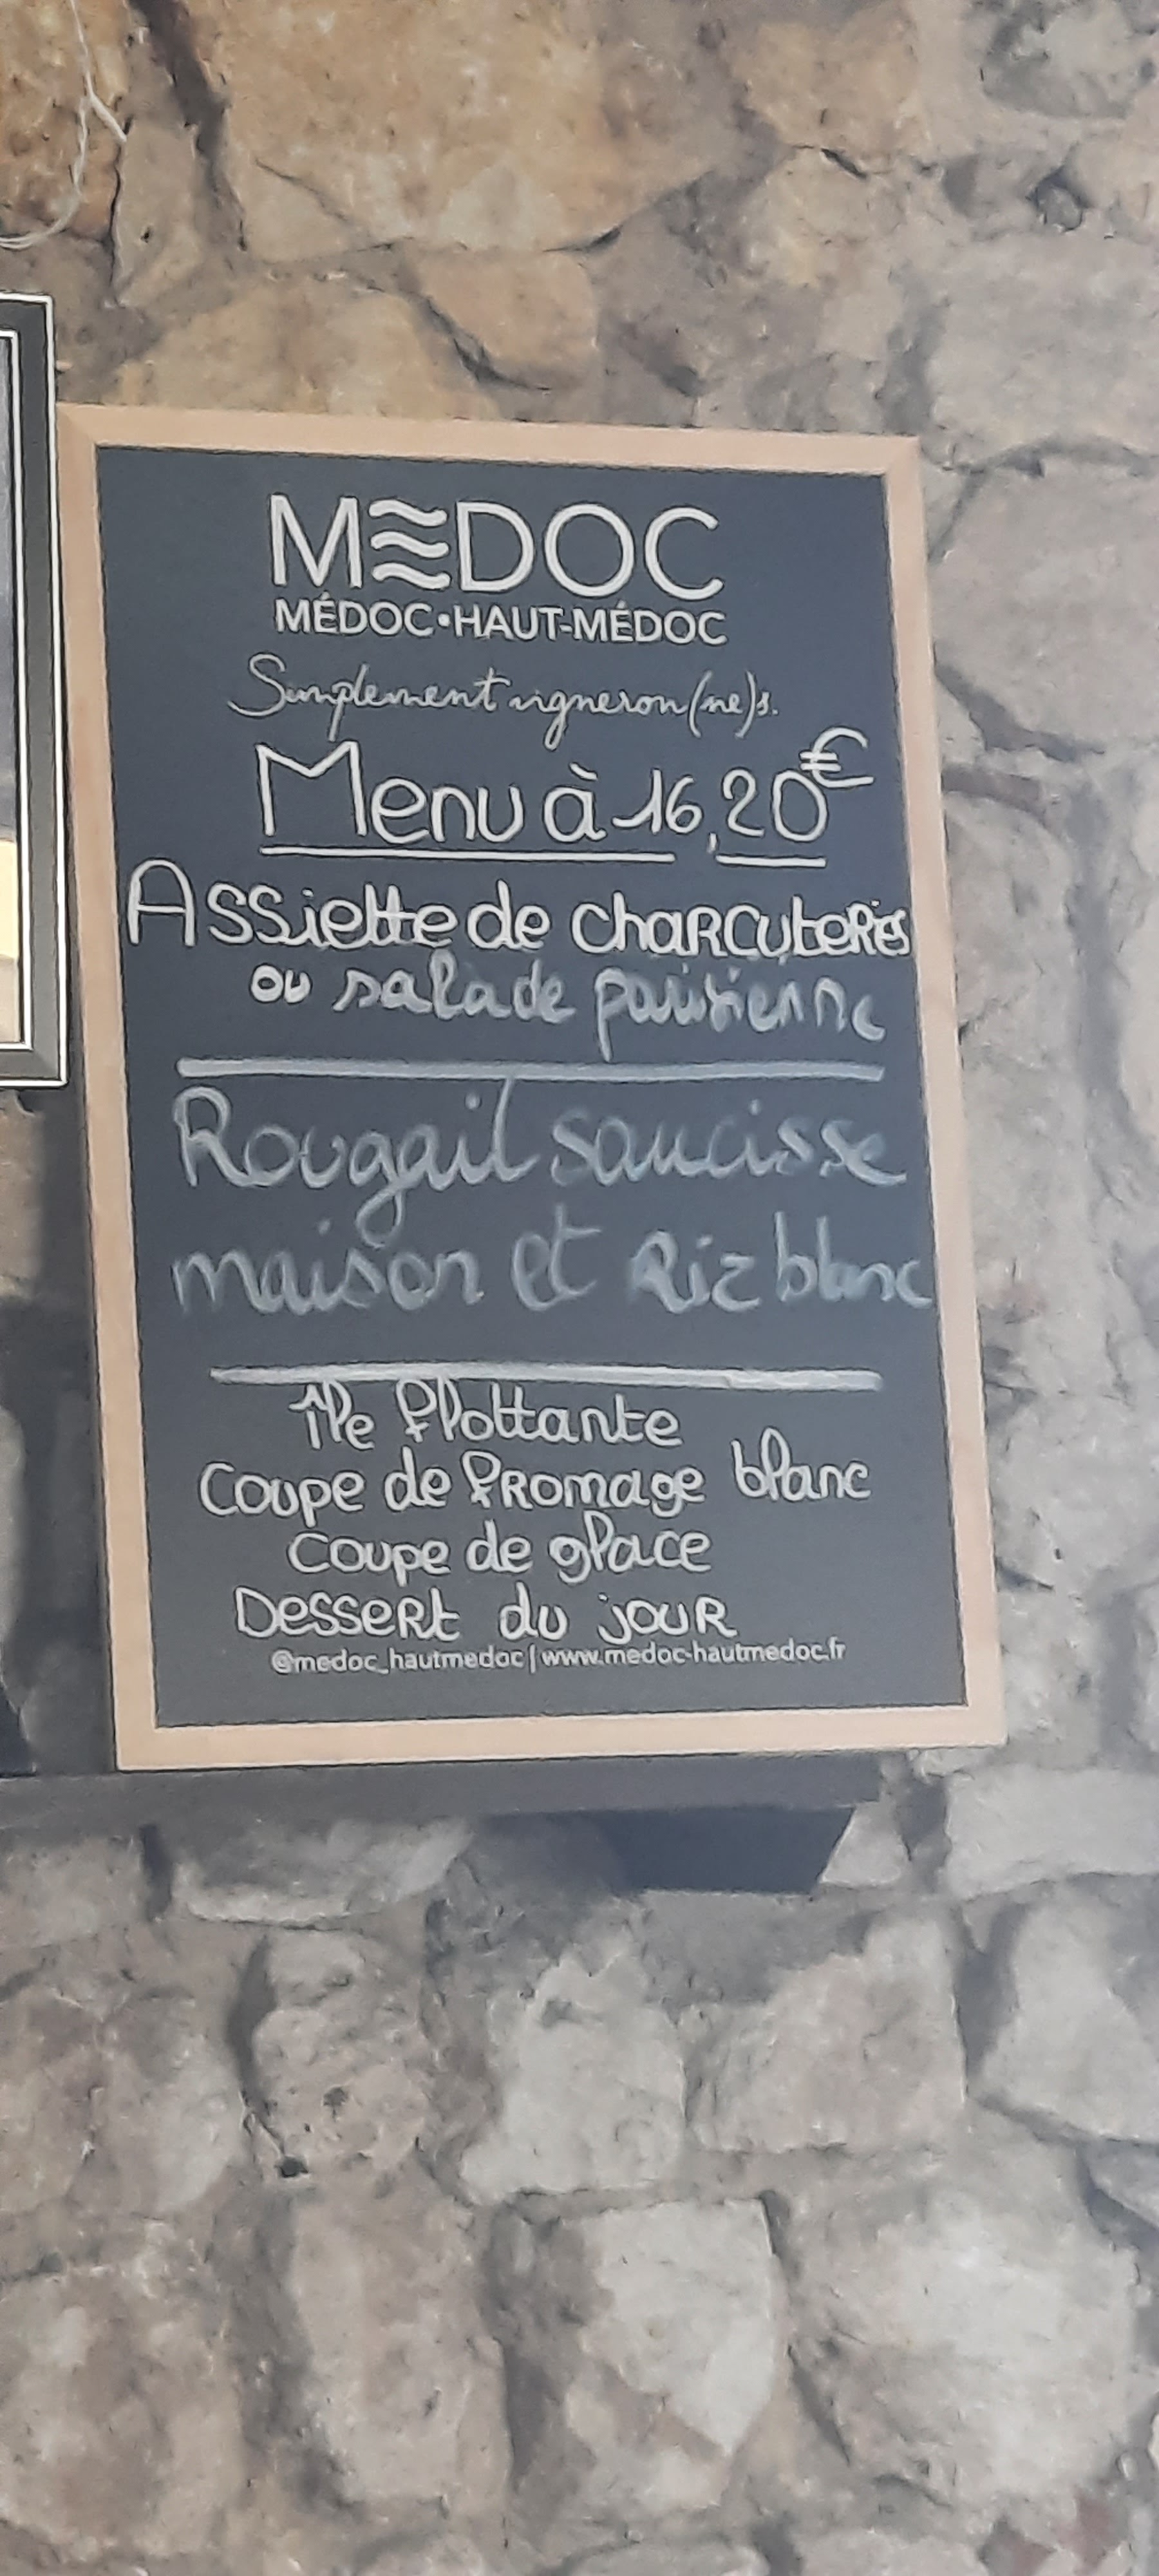 MEDOC
MÉDOC•HAUT-MÉDOC
Simplement vigneron(ne)s.
Menu à 16,20€
Assiette de charcuteries
ou salade parisienne
Rougail saucisse
maison et Riz blanc
Île flottante
Coupe de fromage blanc
Coupe de glace
Dessert du jour
@medoc_hautmedoc | www.medoc-hautmedoc.fr